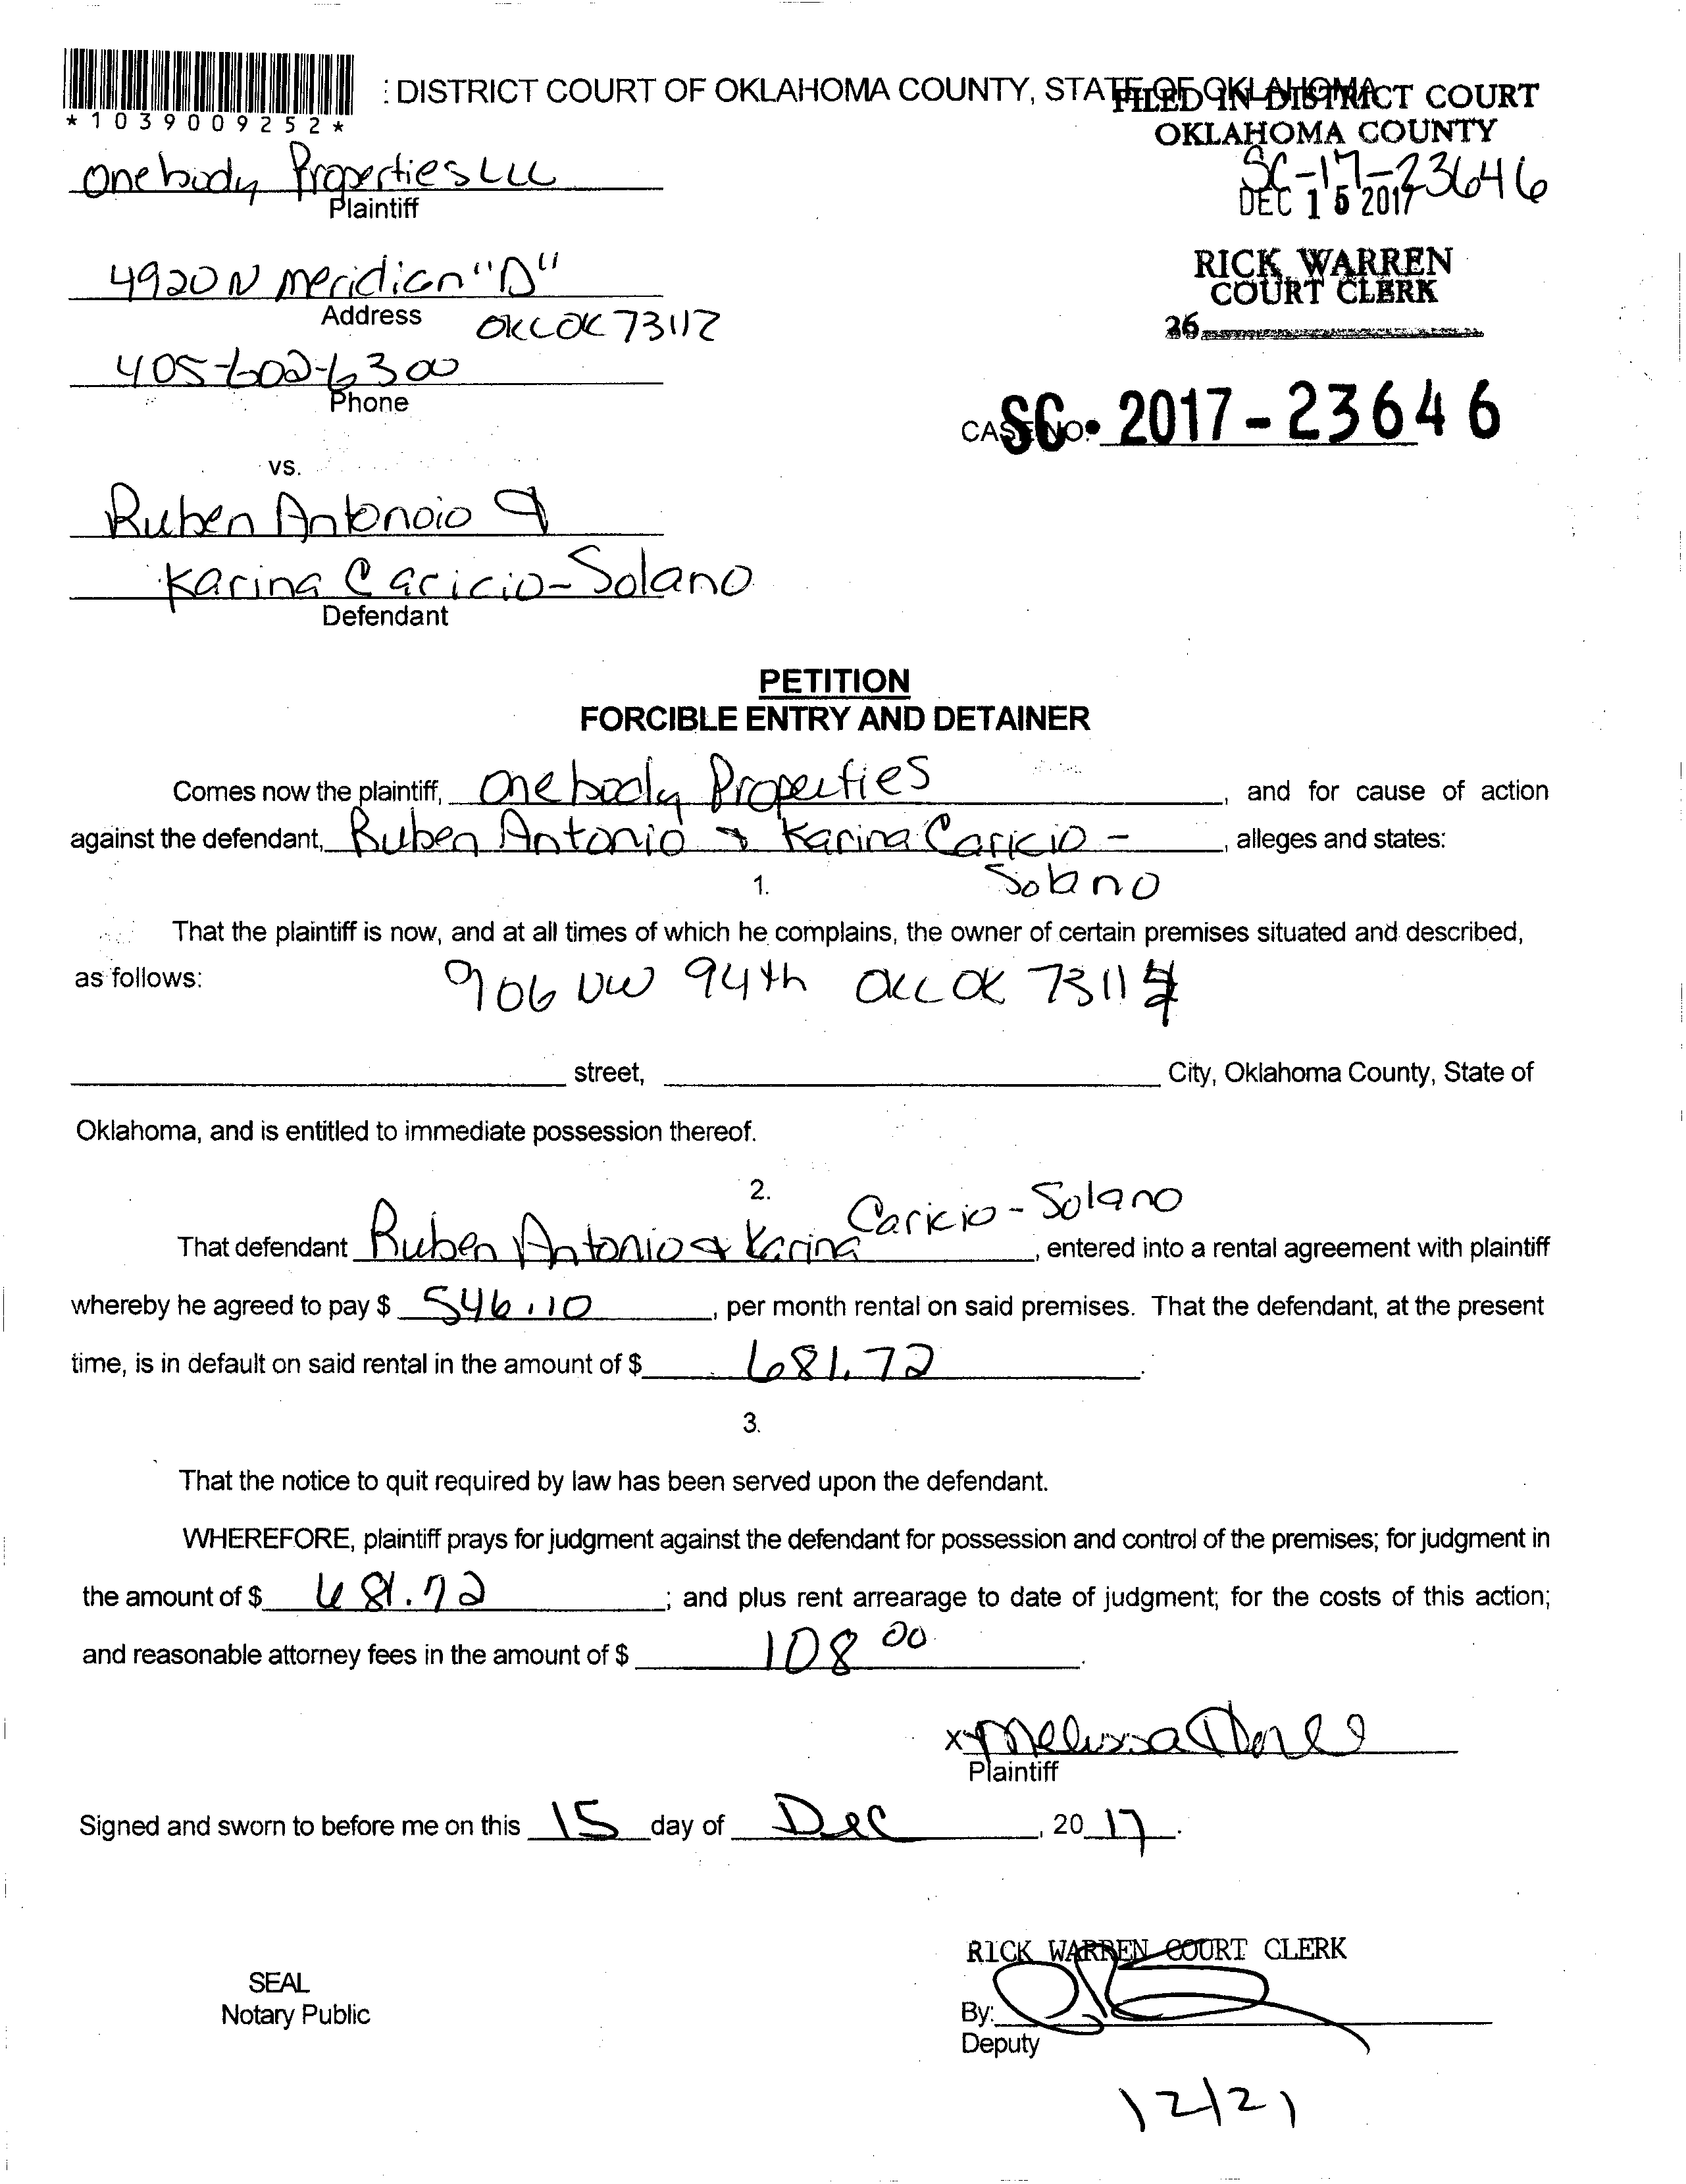 : DISTRICT COURT OF OKLAHOMA COUNTY, STATE OF OKLAHOMA
FILED IN DISTRICT COURT
*1039009252*
OKLAHOMA COUNTY
One body Properties LLC
SC-17-23646
Plaintiff
DEC 15 2017
4920 N Meridian "D"
RICK WARREN
COURT CLERK
Address
OKC OK 73112
36
405-602-6300
Phone
CASE NO.
SC • 2017 - 23646
vs.
Ruben Antonoio &
Karina Caricio-Solano
Defendant
PETITION
FORCIBLE ENTRY AND DETAINER
Comes now the plaintiff, One body Properties, and for cause of action
against the defendant, Ruben Antonio & Karina Caricio -, alleges and states:
1. Solano
That the plaintiff is now, and at all times of which he complains, the owner of certain premises situated and described,
as follows: 906 NW 94th OKC OK
street, City, Oklahoma County, State of
Oklahoma, and is entitled to immediate possession thereof.
2.
Caricio - Solano
That defendant Ruben Antonio & Karina, entered into a rental agreement with plaintiff
whereby he agreed to pay $ 546.10, per month rental on said premises. That the defendant, at the present
time, is in default on said rental in the amount of $ 681.72.
3.
That the notice to quit required by law has been served upon the defendant.
WHEREFORE, plaintiff prays for judgment against the defendant for possession and control of the premises; for judgment in
the amount of $ 681.72; and plus rent arrearage to date of judgment; for the costs of this action;
and reasonable attorney fees in the amount of $ 108 00.
x Melissa
Plaintiff
Signed and sworn to before me on this 15 day of Dec, 2017.
RICK WARREN COURT CLERK
SEAL
Notary Public
By:
Deputy
12/21